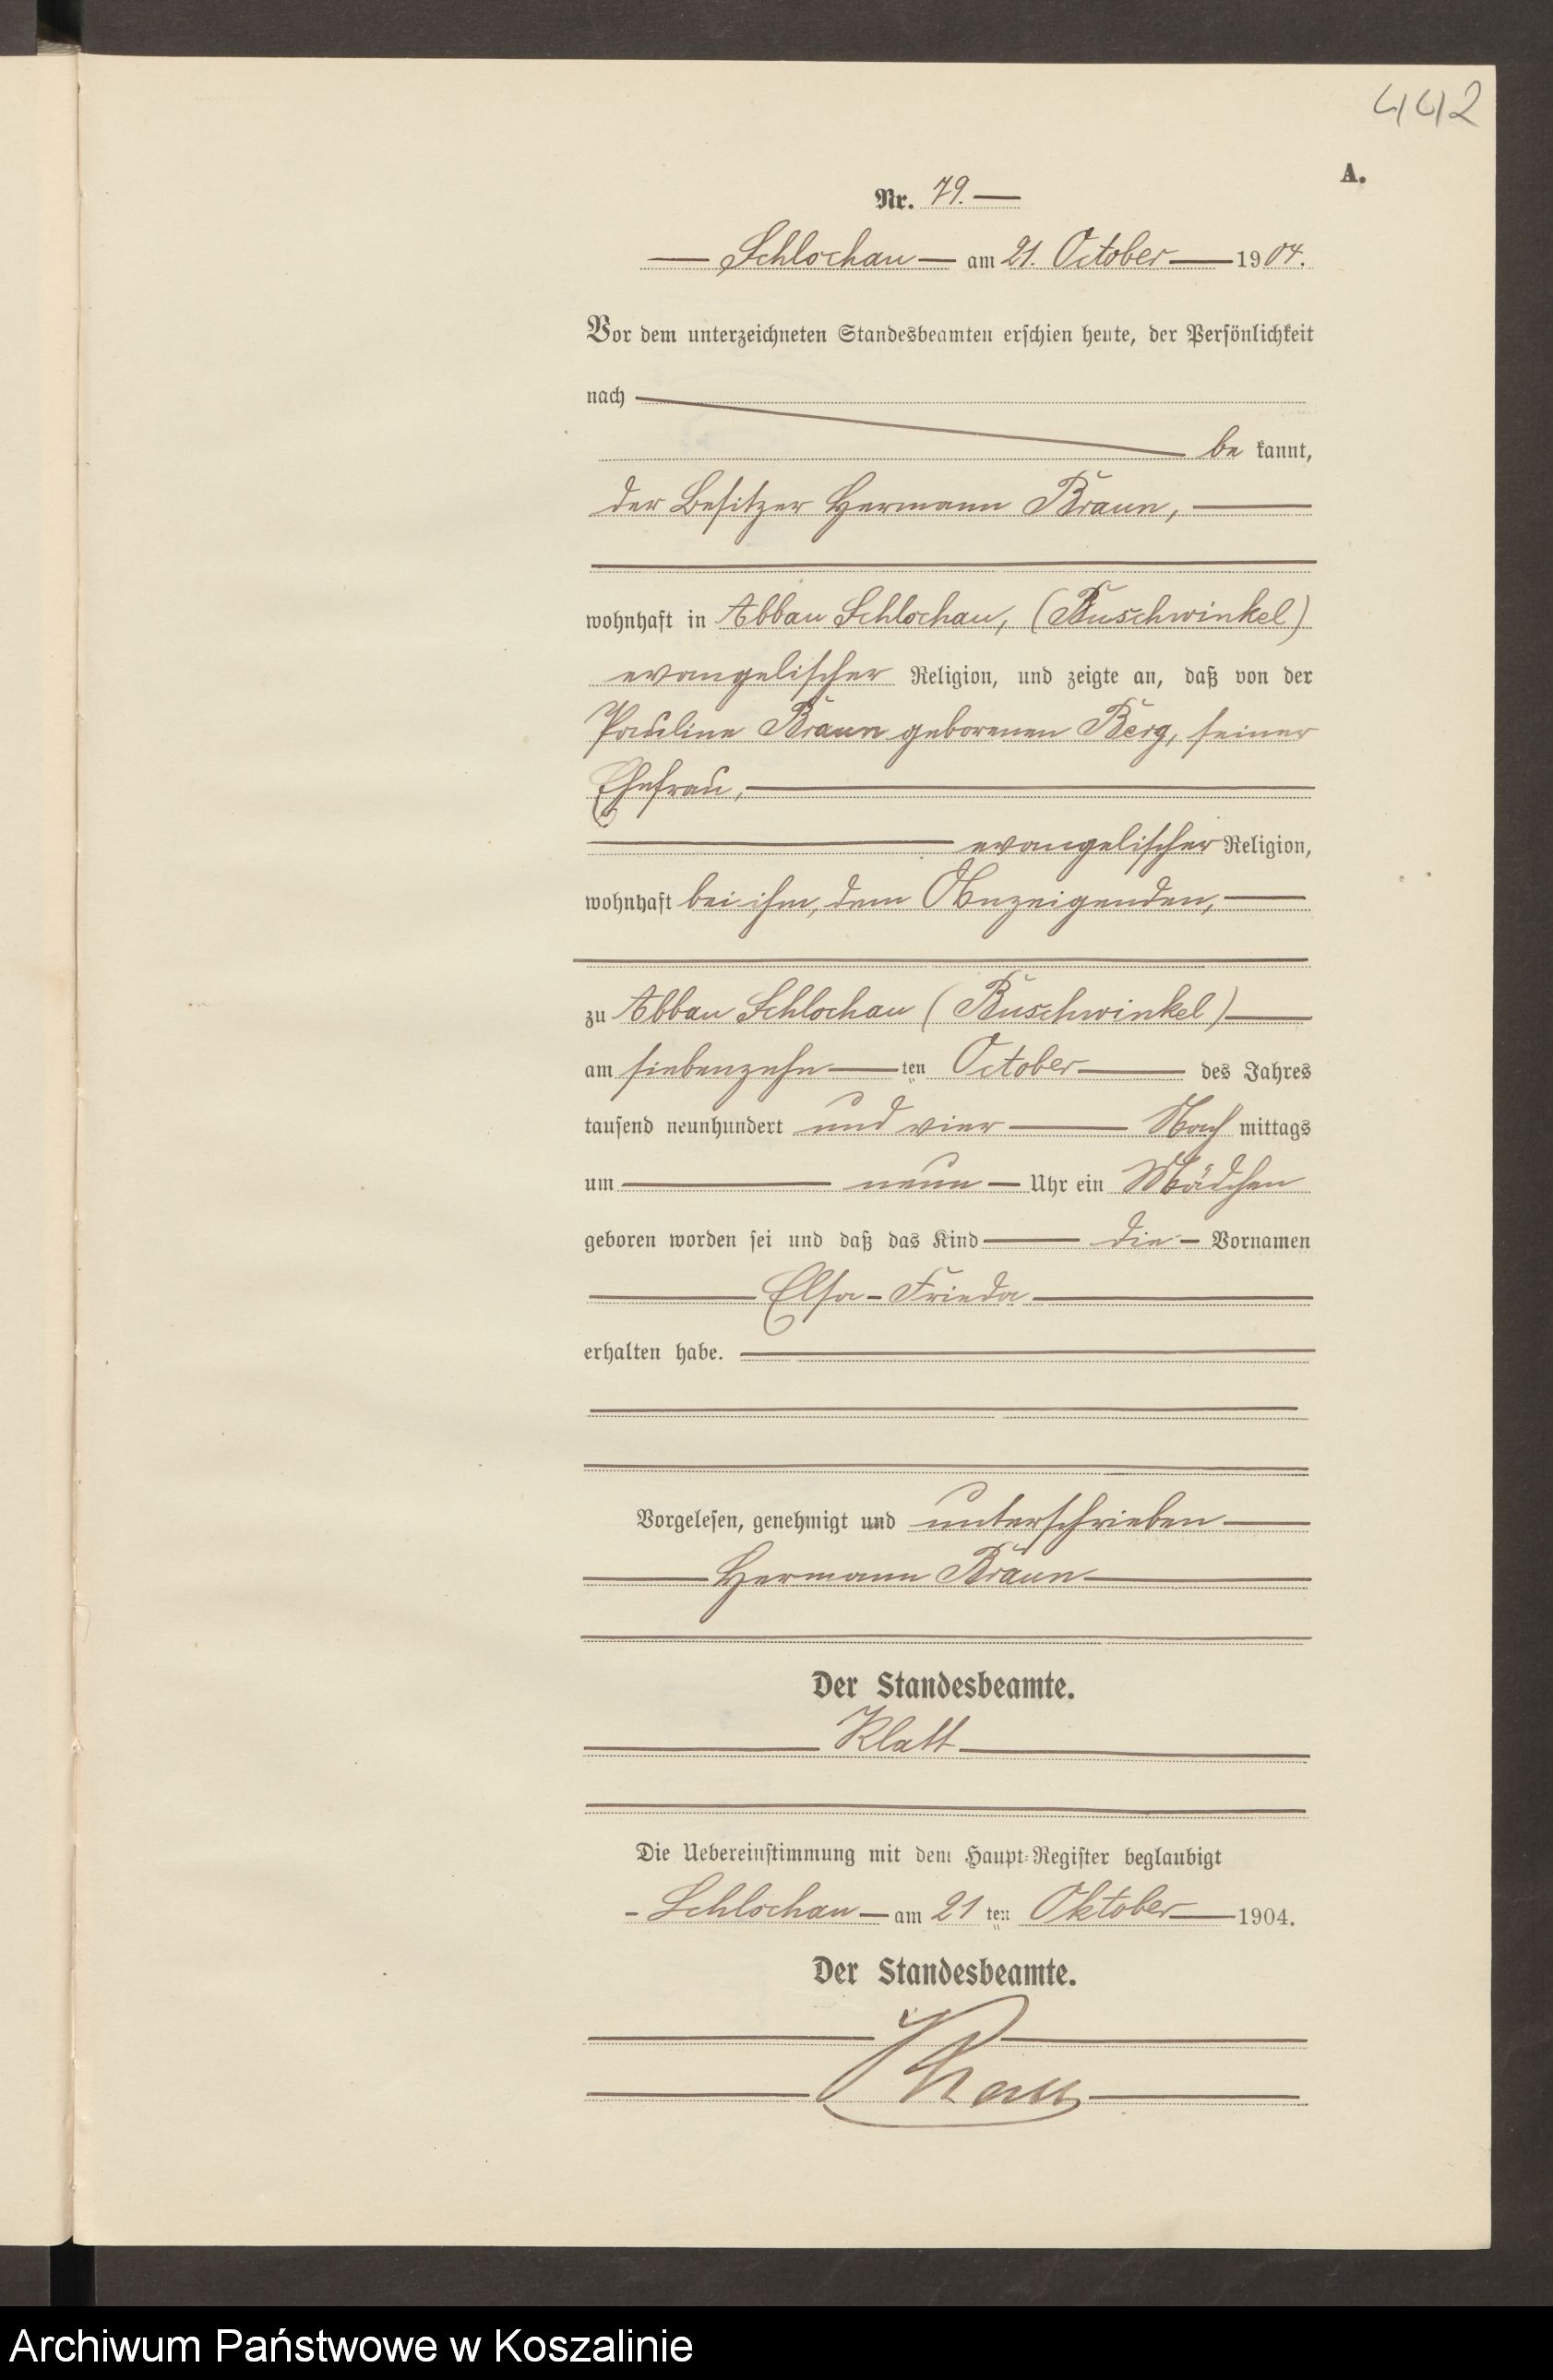 442
A.
Nr. 79.
Schlochau am 21. October 1904.
Vor dem unterzeichneten Standesbeamten erschien heute, der Persönlichkeit
nach
be kannt,
der Besitzer Hermann Braun,
wohnhaft in Abbau Schlochau, (Buschwinkel)
evangelischer Religion, und zeigte an, daß von der
Pauline Braun geborenen Berg, seiner
Ehefrau,
evangelischer Religion,
wohnhaft bei ihm, dem Anzeigenden,
zu Abbau Schlochau (Buschwinkel)
am siebenzehn ten October des Jahres
tausend neunhundert und vier Nach mittags
um neun Uhr ein Mädchen
geboren worden sei und daß das Kind die Vornamen
Elsa-Frieda
erhalten habe.
Vorgelesen, genehmigt und unterschrieben
Hermann Braun
Der Standesbeamte.
Klatt
Die Uebereinstimmung mit dem Haupt-Register beglaubigt
Schlochau am 21 ten Oktober 1904.
Der Standesbeamte.
Klatt
Archiwum Państwowe w Koszalinie